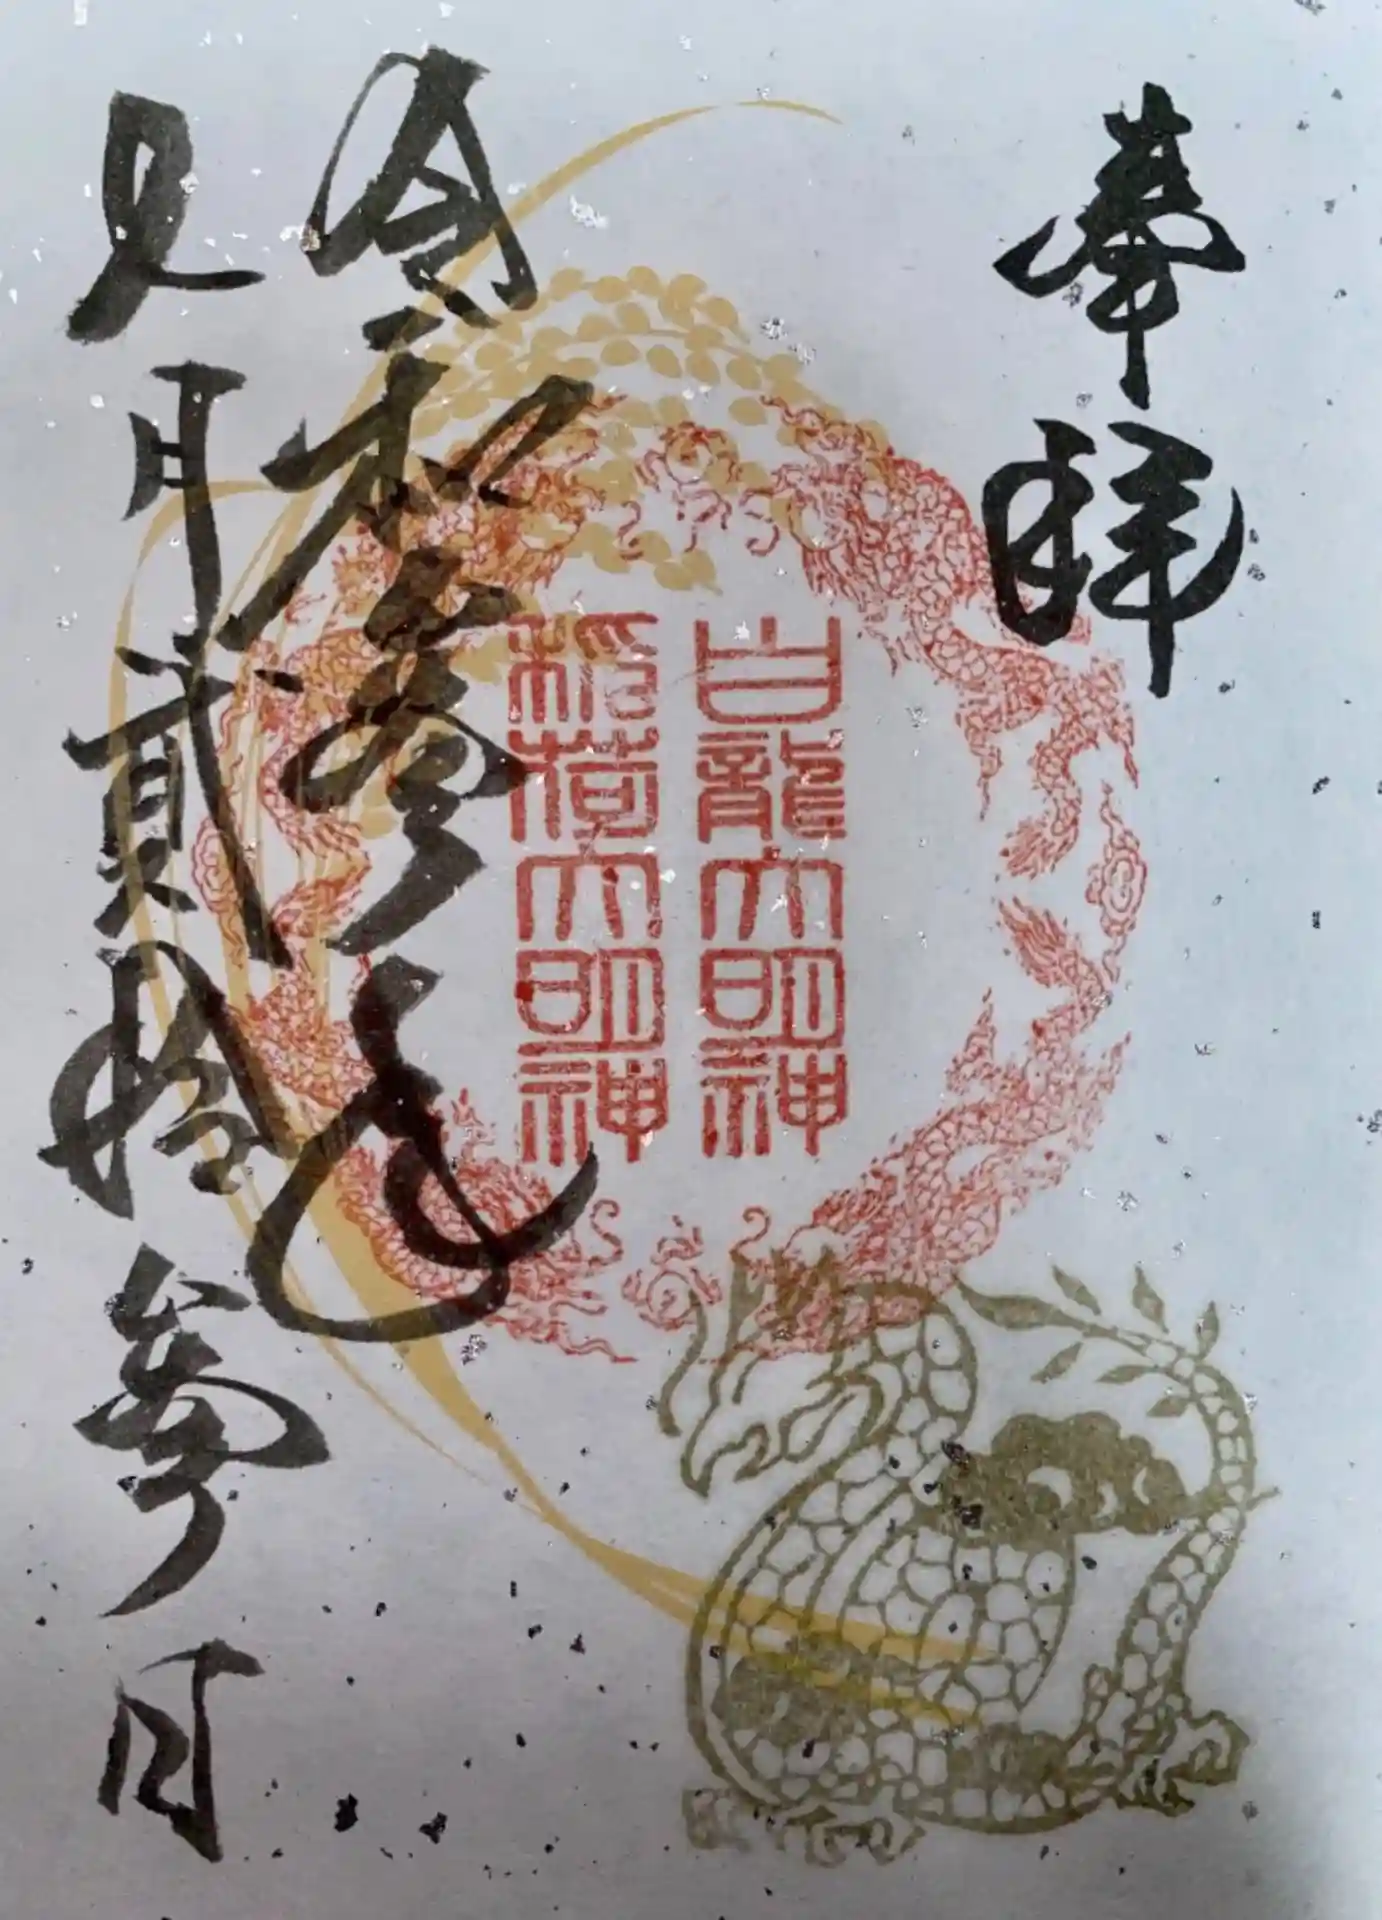 奉拝
白龍大明神
稲荷大明神
令和參年
月貳拾參日